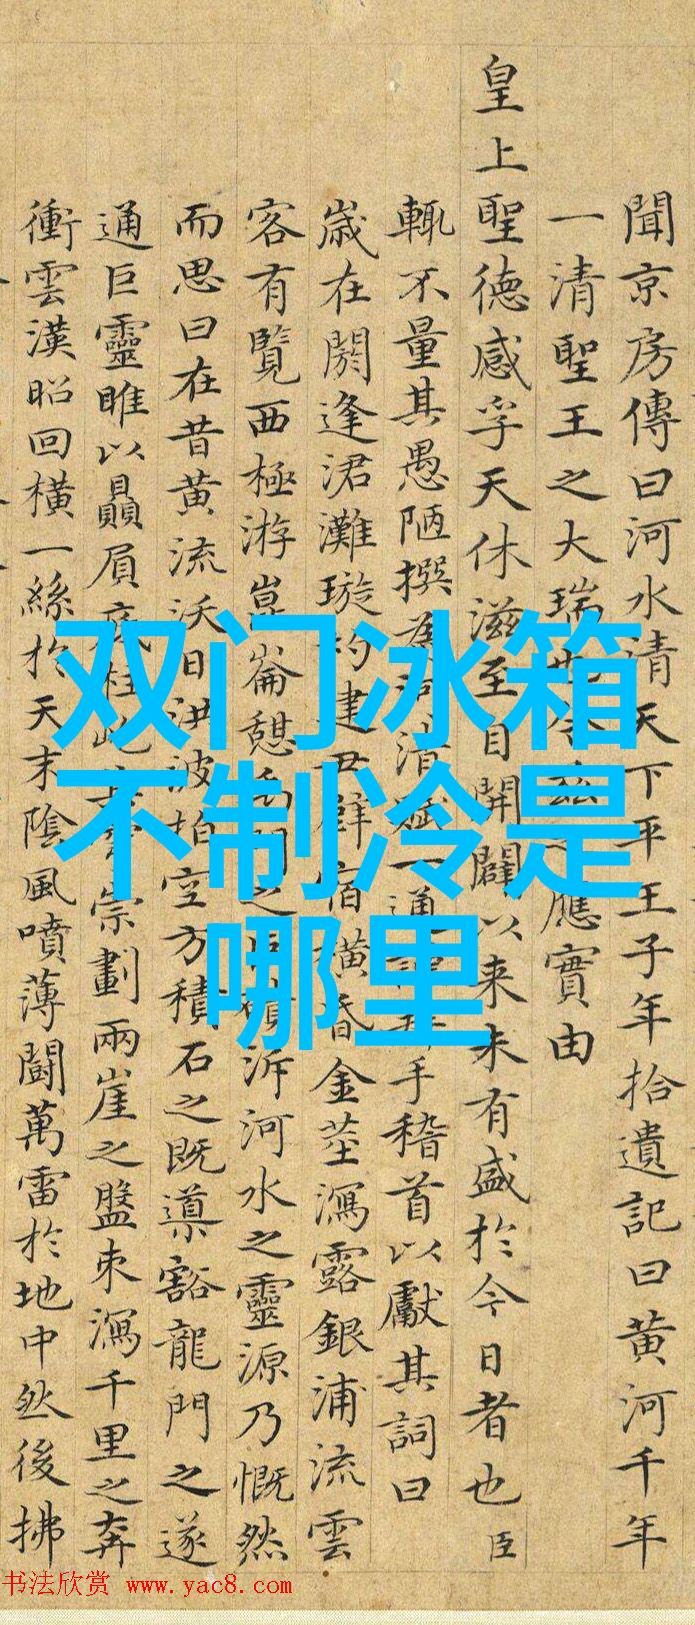 聞京房傳曰河水清天下平王子年拾遺記曰黃河千年
一清聖王之大瑞應實由
皇上聖德感孚天休滋至自開闢以来未有盛於今日者也臣
輒不量其愚陋撰為河清賦一通手稽首以獻其詞曰
歲在閼逢涒灘璇杓建宿橫昏金莖瀉露銀浦流雲
客有覽西極游崑崙憩之泝河水之靈源乃慨然
而思曰在昔黃流沃日洪波拍空方積石之既導豁龍門之遂
通巨靈雎以贔屓底柱屹崇劃兩崖之盤束瀉千里之奔
衝雲漢昭回橫一絲於天末陰風噴薄鬭萬雷於地中然後拂
双门冰箱
不制冷是
哪里
书法欣赏 www.yac8.com